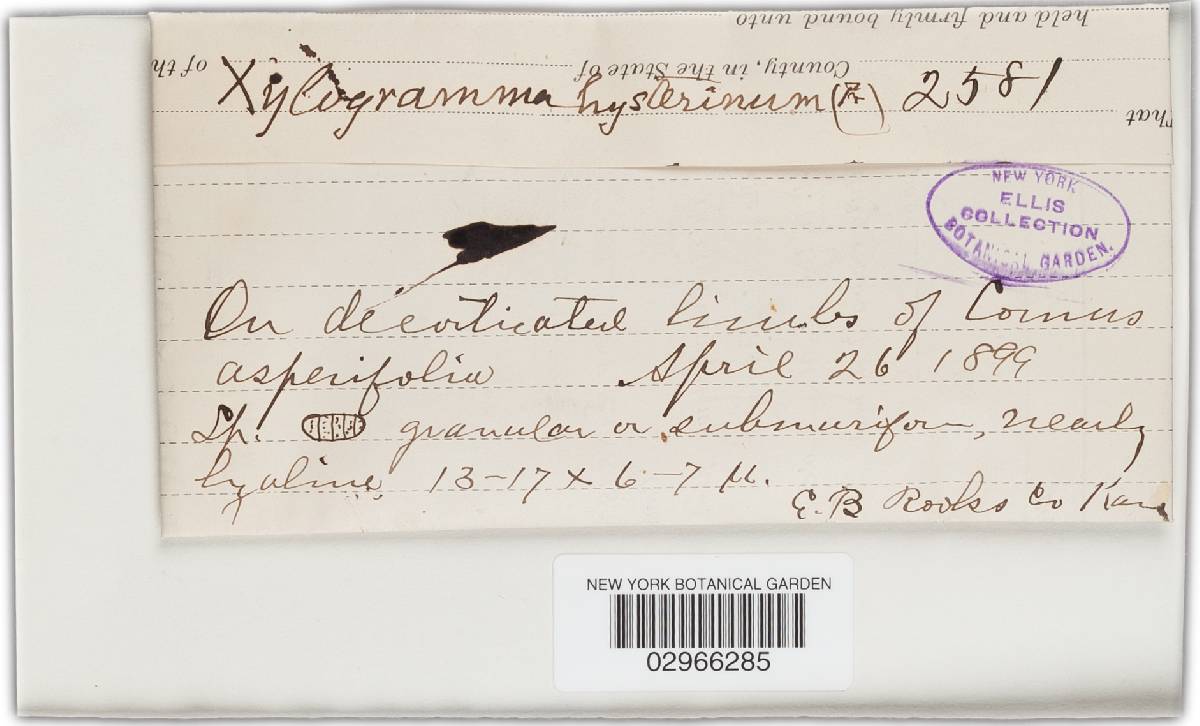 held and firmly bound unto
County, in the State of
of th
That
Xylogramma hysterinum (Fr) 2581
NEW YORK
ELLIS
COLLECTION
BOTANICAL GARDEN.
On decorticated limbs of Cornus
asperifolia April 26 1899
Sp. granular or submuriform, nearly
hyaline, 13-17 x 6-7 µ.
E. B Rooks Co Kans
NEW YORK BOTANICAL GARDEN
02966285